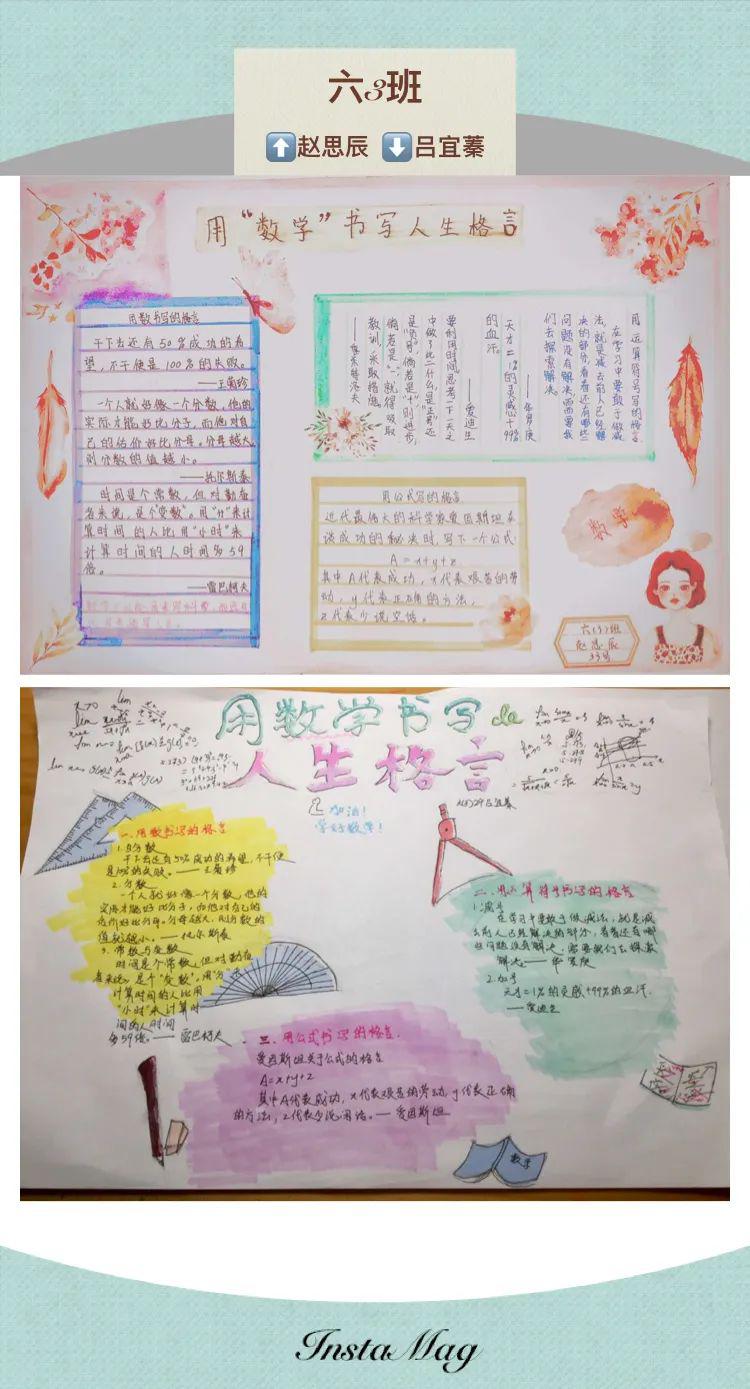 六3班
⬆️赵思辰 ⬇️吕宜蓁
用“数学”书写人生格言
用数书写的格言
干下去还有50%成功的希
望，不干便是100%的失败。
——王菊珍
一个人就好像一个分数，他的
实际才能好比分子，而他对自
己的估价好比分母，分母越大，
则分数的值越小。
——托尔斯泰
时间是个常数，但对勤奋
者来说，是个“变数”。用“分”来计
算时间的人比用“小时”来
计算时间的人时间多59
倍。
——雷巴柯夫
用运算符号写的格言
在学习中要敢于做减
法，就是减去前人已经解
决的部分，看看还有哪些
问题没有解决，需要我
们去探索解决。
——华罗庚
天才=1%的灵感+99%
的血汗。
——爱迪生
要利用时间思考一下一天之
中做了些什么，是“正号”还
是“负号”，倘若是“+”，则进步；
倘若是“-”，就得吸取
教训，采取措施。
——季米特洛夫
用公式写的格言
近代最伟大的科学家爱因斯坦在
谈成功的秘决时，写下一个公式：
A=x+y+z
其中A代表成功，x代表艰苦的劳
动，y代表正确的方法，
z代表少说空话。
数学
六(3)班
赵思辰
33号
用数学书写de
人生格言
加油！
学好数学！
一、用数书写的格言
1.百分数
干下去还有50%成功的希望，不干便
是100%的失败。——王菊珍
2.分数
一个人就好像一个分数，他的
实际才能好比分子，而他对自己的
估价好比分母。分母越大，则分数的
值就越小。——托尔斯泰
3.常数与变数
时间是个常数，但对勤奋
者来说，是个“变数”。用“分”来
计算时间的人比用
“小时”来计算时
间的人时间
多59倍。——雷巴柯夫
二、用运算符号书写的格言
1.减号
在学习中要敢于做减法，就是减
去前人已经解决的部分，看看还有哪
些问题没有解决，需要我们去探索
解决。——华罗庚
2.加号
天才=1%的灵感+99%的血汗。
——爱迪生
三、用公式书写的格言.
爱因斯坦关于公式的格言
A=x+y+z
其中A代表成功，x代表艰苦的劳动，y代表正确
的方法，z代表少说闲话。——爱因斯坦
数学
InstaMag